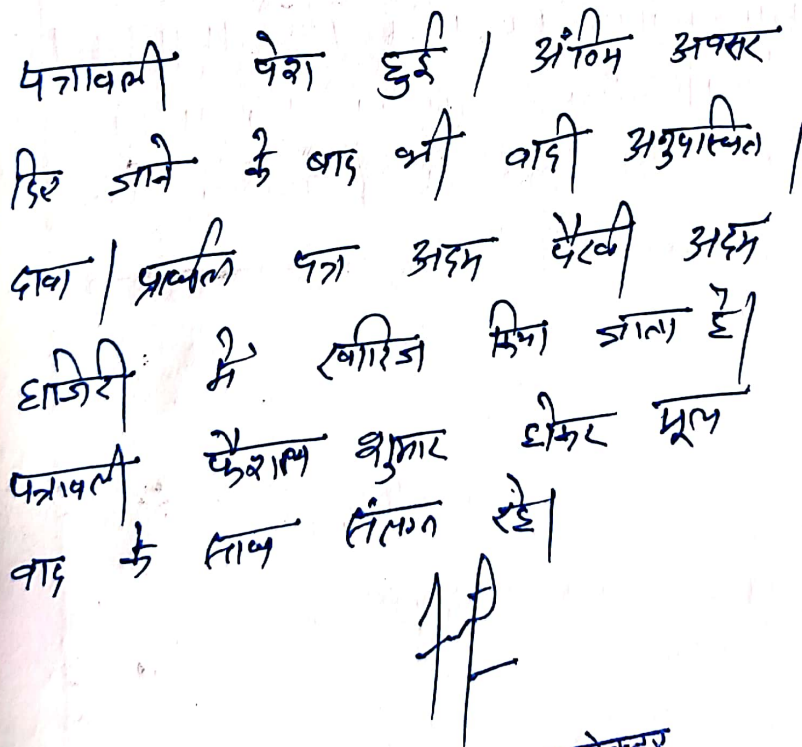 पत्रावली पेश हुई। अंतिम अवसर
दिए जाने के बाद भी वादी अनुपस्थित।
दावा / प्रार्थना पत्र अदम पैरवी अदम
हाजिरी में खारिज किया जाता है।
पत्रावली फैशल शुमार होकर मूल
वाद के साथ संलग्न रहे।